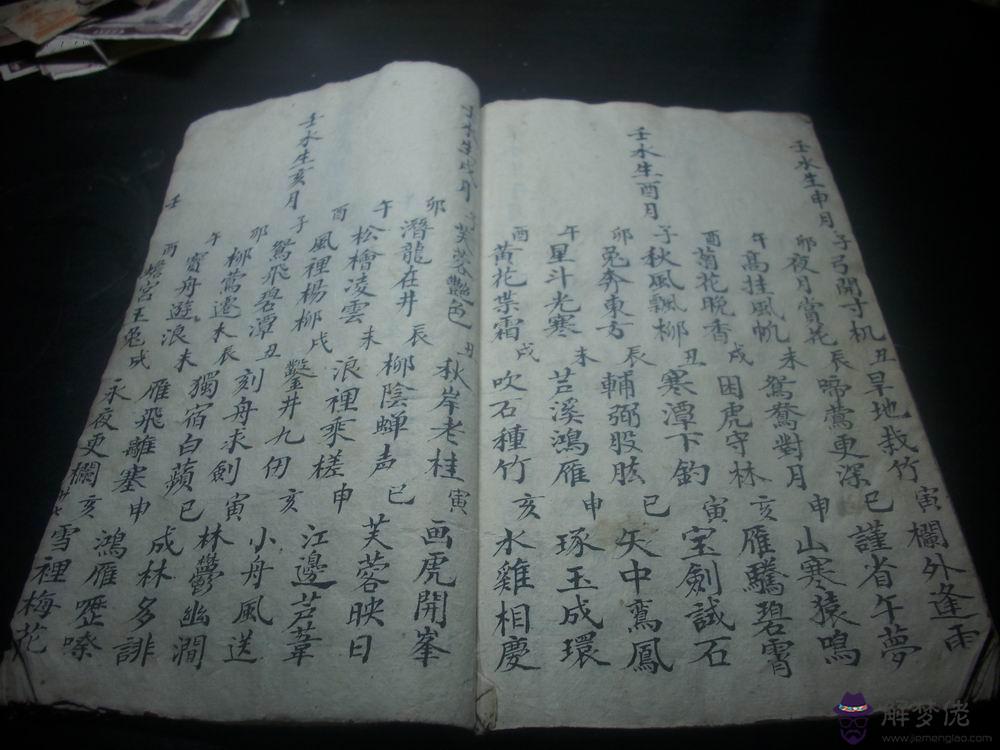 壬水生申月 子弓開寸机 丑旱地栽竹 寅欄外逢雨
卯夜月賞花 辰啼鶯更深 巳謹省午夢
午高挂風帆 未鴛鴦對月 申山寒猿鳴
酉菊花晚香 戌困虎守林 亥雁騰碧霄
壬水生酉月 子秋風飄柳 丑寒潭下釣 寅宝劍試石
卯兔奔東方 辰輔弼股肱 巳矢中鸞鳳
午星斗光寒 未芦溪鴻雁 申琢玉成環
酉黃花葉霜 戌吹石種竹 亥水雞相慶
壬水生戌月 子芙蓉艷色 丑秋岸老桂 寅画虎開峯
卯潛龍在井 辰柳陰蝉声 巳芙蓉映日
午松檜凌雲 未浪裡乘槎 申江邊芦葦
酉風裡楊柳 戌鑿井九仞 亥小舟風送
壬水生亥月 子鴛飛碧潭 丑刻舟求劍 寅林鬱幽澗
卯柳鶯遷木 辰獨宿白蘋 巳成林多誹
午寶舟遊浪 未雁飛離塞 申鴻雁嚦嗦
酉蟾宮玉兔 戌永夜更欄 亥雪裡梅花
壬
解梦佬
www.jiemenglao.com